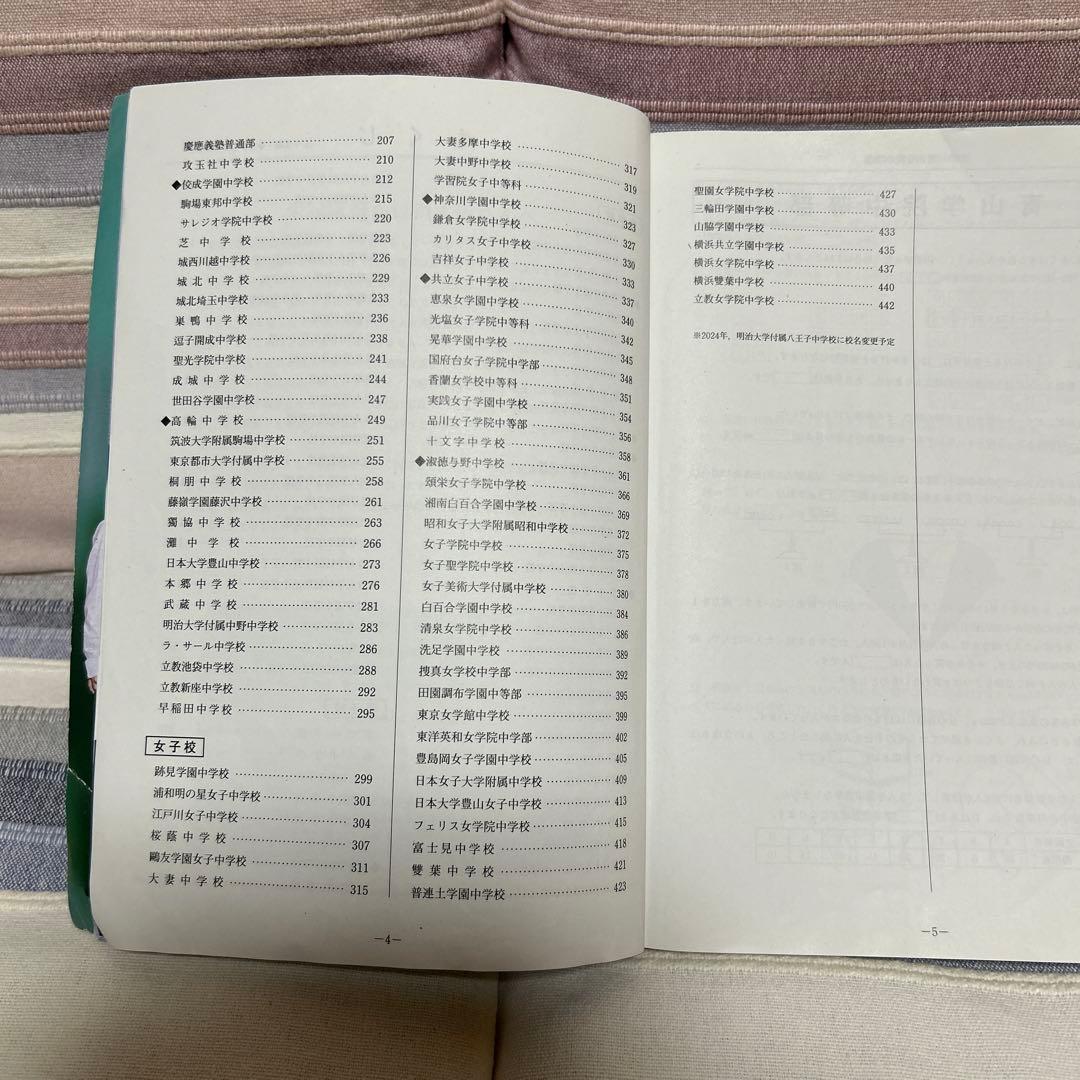 慶應義塾普通部 207
攻玉社中学校 210
◆佼成学園中学校 212
駒場東邦中学校 215
サレジオ学院中学校 220
芝中学校 223
城西川越中学校 226
城北中学校 229
城北埼玉中学校 233
巣鴨中学校 236
逗子開成中学校 238
聖光学院中学校 241
成城中学校 244
世田谷学園中学校 247
◆高輪中学校 249
筑波大学附属駒場中学校 251
東京都市大学付属中学校 255
桐朋中学校 258
藤嶺学園藤沢中学校 261
獨協中学校 263
灘中学校 266
日本大学豊山中学校 273
本郷中学校 276
武蔵中学校 281
明治大学付属中野中学校 283
ラ・サール中学校 286
立教池袋中学校 288
立教新座中学校 292
早稲田中学校 295
女子校
跡見学園中学校 299
浦和明の星女子中学校 301
江戸川女子中学校 304
桜蔭中学校 307
鷗友学園女子中学校 311
大妻中学校 315
大妻多摩中学校 317
大妻中野中学校 319
学習院女子中等科 321
◆神奈川学園中学校 323
鎌倉女学院中学校 327
カリタス女子中学校 330
吉祥女子中学校 333
◆共立女子中学校 337
恵泉女学園中学校 340
光塩女子学院中等科 342
晃華学園中学校 345
国府台女子学院中学部 348
香蘭女学校中等科 351
実践女子学園中学校 354
品川女子学院中等部 356
十文字中学校 358
◆淑徳与野中学校 361
頌栄女子学院中学校 366
湘南白百合学園中学校 369
昭和女子大学附属昭和中学校 372
女子学院中学校 375
女子聖学院中学校 378
女子美術大学付属中学校 380
白百合学園中学校 384
清泉女学院中学校 386
洗足学園中学校 389
捜真女学校中学部 392
田園調布学園中等部 395
東京女学館中学校 399
東洋英和女学院中学部 402
豊島岡女子学園中学校 405
日本女子大学附属中学校 409
日本大学豊山女子中学校 413
フェリス女学院中学校 415
富士見中学校 418
雙葉中学校 421
普連土学園中学校 423
―4―
聖園女学院中学校 427
三輪田学園中学校 430
山脇学園中学校 433
横浜共立学園中学校 435
横浜女学院中学校 437
横浜雙葉中学校 440
立教女学院中学校 442
※2024年，明治大学付属八王子中学校に校名変更予定
―5―